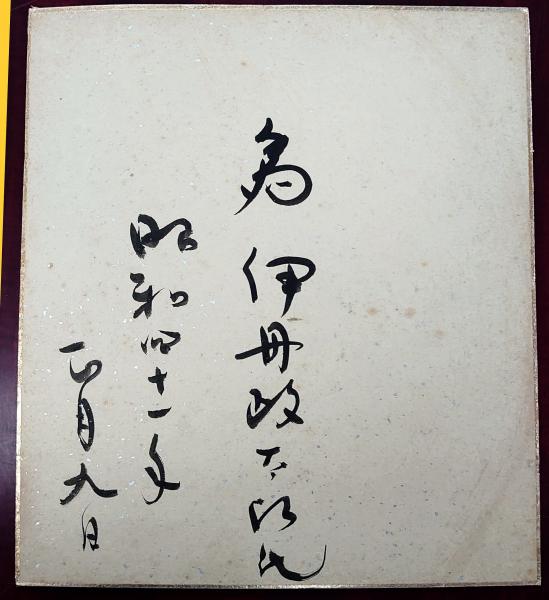 為 伊丹政太郎氏
昭和四十一年
正月九日